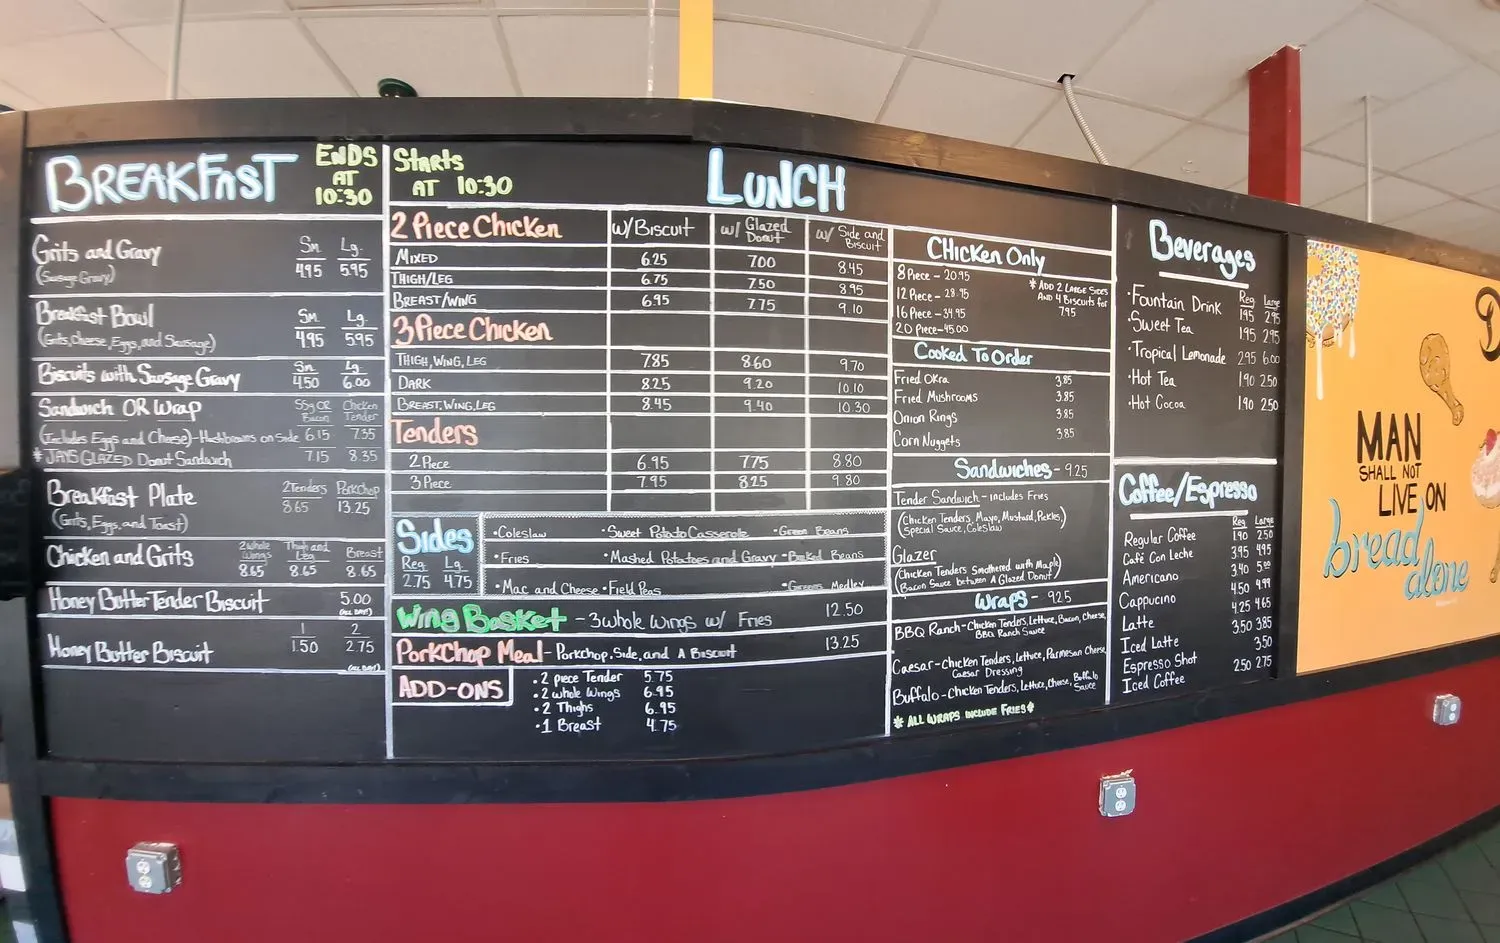 BREAKFAST
ENDS
AT
10:30
Grits and Gravy Sm. Lg.
(Sausage Gravy) 4.95 5.95
Breakfast Bowl Sm. Lg.
(Grits, Cheese, Eggs, and Sausage) 4.95 5.95
Biscuits with Sausage Gravy Sm. Lg.
4.50 6.00
Sandwich OR Wrap Ssg OR Bacon Chicken Tender
(Includes Eggs and Cheese) - Hashbrowns on Side 6.15 7.35
* JAYS GLAZED Donut Sandwich 7.15 8.35
Breakfast Plate 2 Tenders Porkchop
(Grits, Eggs, and Toast) 8.65 13.25
Chicken and Grits 2 Whole Wings Thigh and Leg Breast
8.65 8.65 8.65
Honey Butter Tender Biscuit 5.00
(ALL DAY!)
Honey Butter Biscuit 1 2
1.50 2.75
(ALL DAY!)
Starts
AT 10:30
LUNCH
2 Piece Chicken w/ Biscuit w/ Glazed Donut w/ Side and Biscuit
MIXED 6.25 7.00 8.45
THIGH/LEG 6.75 7.50 8.95
BREAST/WING 6.95 7.75 9.10
3 Piece Chicken
THIGH, WING, LEG 7.85 8.60 9.70
DARK 8.25 9.20 10.10
BREAST, WING, LEG 8.45 9.40 10.30
Tenders
2 Piece 6.95 7.75 8.80
3 Piece 7.95 8.25 9.80
Sides
Reg. Lg.
2.75 4.75
• Coleslaw • Sweet Potato Casserole • Green Beans
• Fries • Mashed Potatoes and Gravy • Baked Beans
• Mac and Cheese • Field Peas • Greens Medley
Wing Basket - 3 whole Wings w/ Fries 12.50
PorkChop Meal - Porkchop, Side, and A Biscuit 13.25
ADD-ONS
• 2 piece Tender 5.75
• 2 whole Wings 6.95
• 2 Thighs 6.95
• 1 Breast 4.75
Chicken Only
8 Piece - 20.95
12 Piece - 28.95
16 Piece - 34.95
20 Piece - 45.00
* ADD 2 LARGE SIDES
AND 4 BISCUITS for
7.95
Cooked To Order
Fried Okra 3.85
Fried Mushrooms 3.85
Onion Rings 3.85
Corn Nuggets 3.85
Sandwiches - 9.25
Tender Sandwich - includes Fries
(Chicken Tenders, Mayo, Mustard, Pickles,
Special Sauce, Coleslaw)
Glazer
(Chicken Tenders Smothered with Maple
Bacon Sauce between A Glazed Donut)
Wraps - 9.25
BBQ Ranch - Chicken Tenders, Lettuce, Bacon, Cheese,
BBQ Ranch Sauce
Caesar - Chicken Tenders, Lettuce, Parmesan Cheese,
Caesar Dressing
Buffalo - Chicken Tenders, Lettuce, Cheese, Buffalo
Sauce
* ALL WRAPS INCLUDE FRIES *
Beverages
Reg Large
• Fountain Drink 1.95 2.95
• Sweet Tea 1.95 2.95
• Tropical Lemonade 2.95 6.00
• Hot Tea 1.90 2.50
• Hot Cocoa 1.90 2.50
Coffee/Espresso
Reg Large
Regular Coffee 1.90 2.50
Café Con Leche 3.95 4.95
Americano 3.40 5.00
Cappucino 4.50 4.99
Latte 4.25 4.65
Iced Latte 3.50 3.85
Espresso Shot 3.50
Iced Coffee 2.50 2.75
MAN
SHALL NOT
LIVE ON
bread
alone